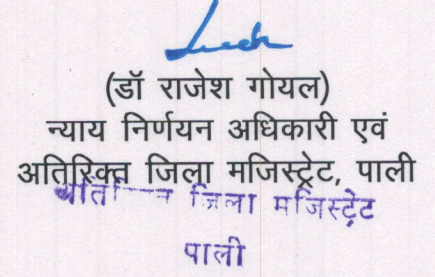 (डॉ राजेश गोयल)
न्याय निर्णयन अधिकारी एवं
अतिरिक्त जिला मजिस्ट्रेट, पाली
जिला मजिस्ट्रेट
पाली